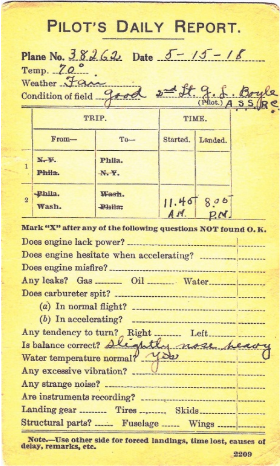 PILOT'S DAILY REPORT.
Plane No. 38262 Date 5-15-18
Temp. 70°
Weather Fair
Condition of field good 2nd Lt. G. L. Boyle
(Pilot.) A.S.S.R.C.
TRIP. TIME.
From— To— Started. Landed.
1 N. Y. Phila.
Phila. N. Y.
2 Phila. Wash.
Wash. Phila. 11.45 8.05
A.M. P.M.
Mark "X" after any of the following questions NOT found O. K.
Does engine lack power?
Does engine hesitate when accelerating?
Does engine misfire?
Any leaks? Gas Oil Water
Does carbureter spit?
(a) In normal flight?
(b) In accelerating?
Any tendency to turn? Right Left
Is balance correct? Slightly nose heavy
Water temperature normal? Yes
Any excessive vibration?
Any strange noise?
Are instruments recording?
Landing gear Tires Skids
Structural parts? Fuselage Wings
2209
Note.—Use other side for forced landings, time lost, causes of
delay, remarks, etc.